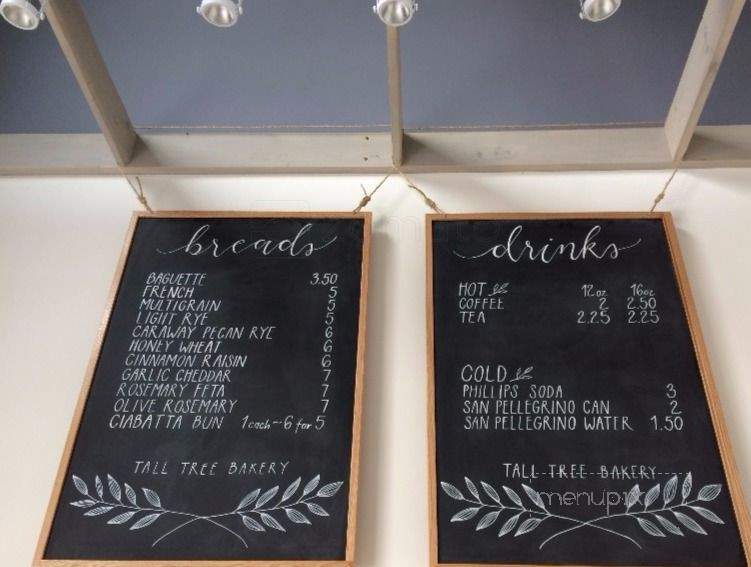 breads
BAGUETTE 3.50
FRENCH 5
MULTIGRAIN 5
LIGHT RYE 5
CARAWAY PECAN RYE 6
HONEY WHEAT 6
CINNAMON RAISIN 6
GARLIC CHEDDAR 7
ROSEMARY FETA 7
OLIVE ROSEMARY 7
CIABATTA BUN 1 each - 6 for 5
TALL TREE BAKERY
drinks
HOT 12oz 16oz
COFFEE 2 2.50
TEA 2.25 2.25
COLD
PHILLIPS SODA 3
SAN PELLEGRINO CAN 2
SAN PELLEGRINO WATER 1.50
TALL TREE BAKERY